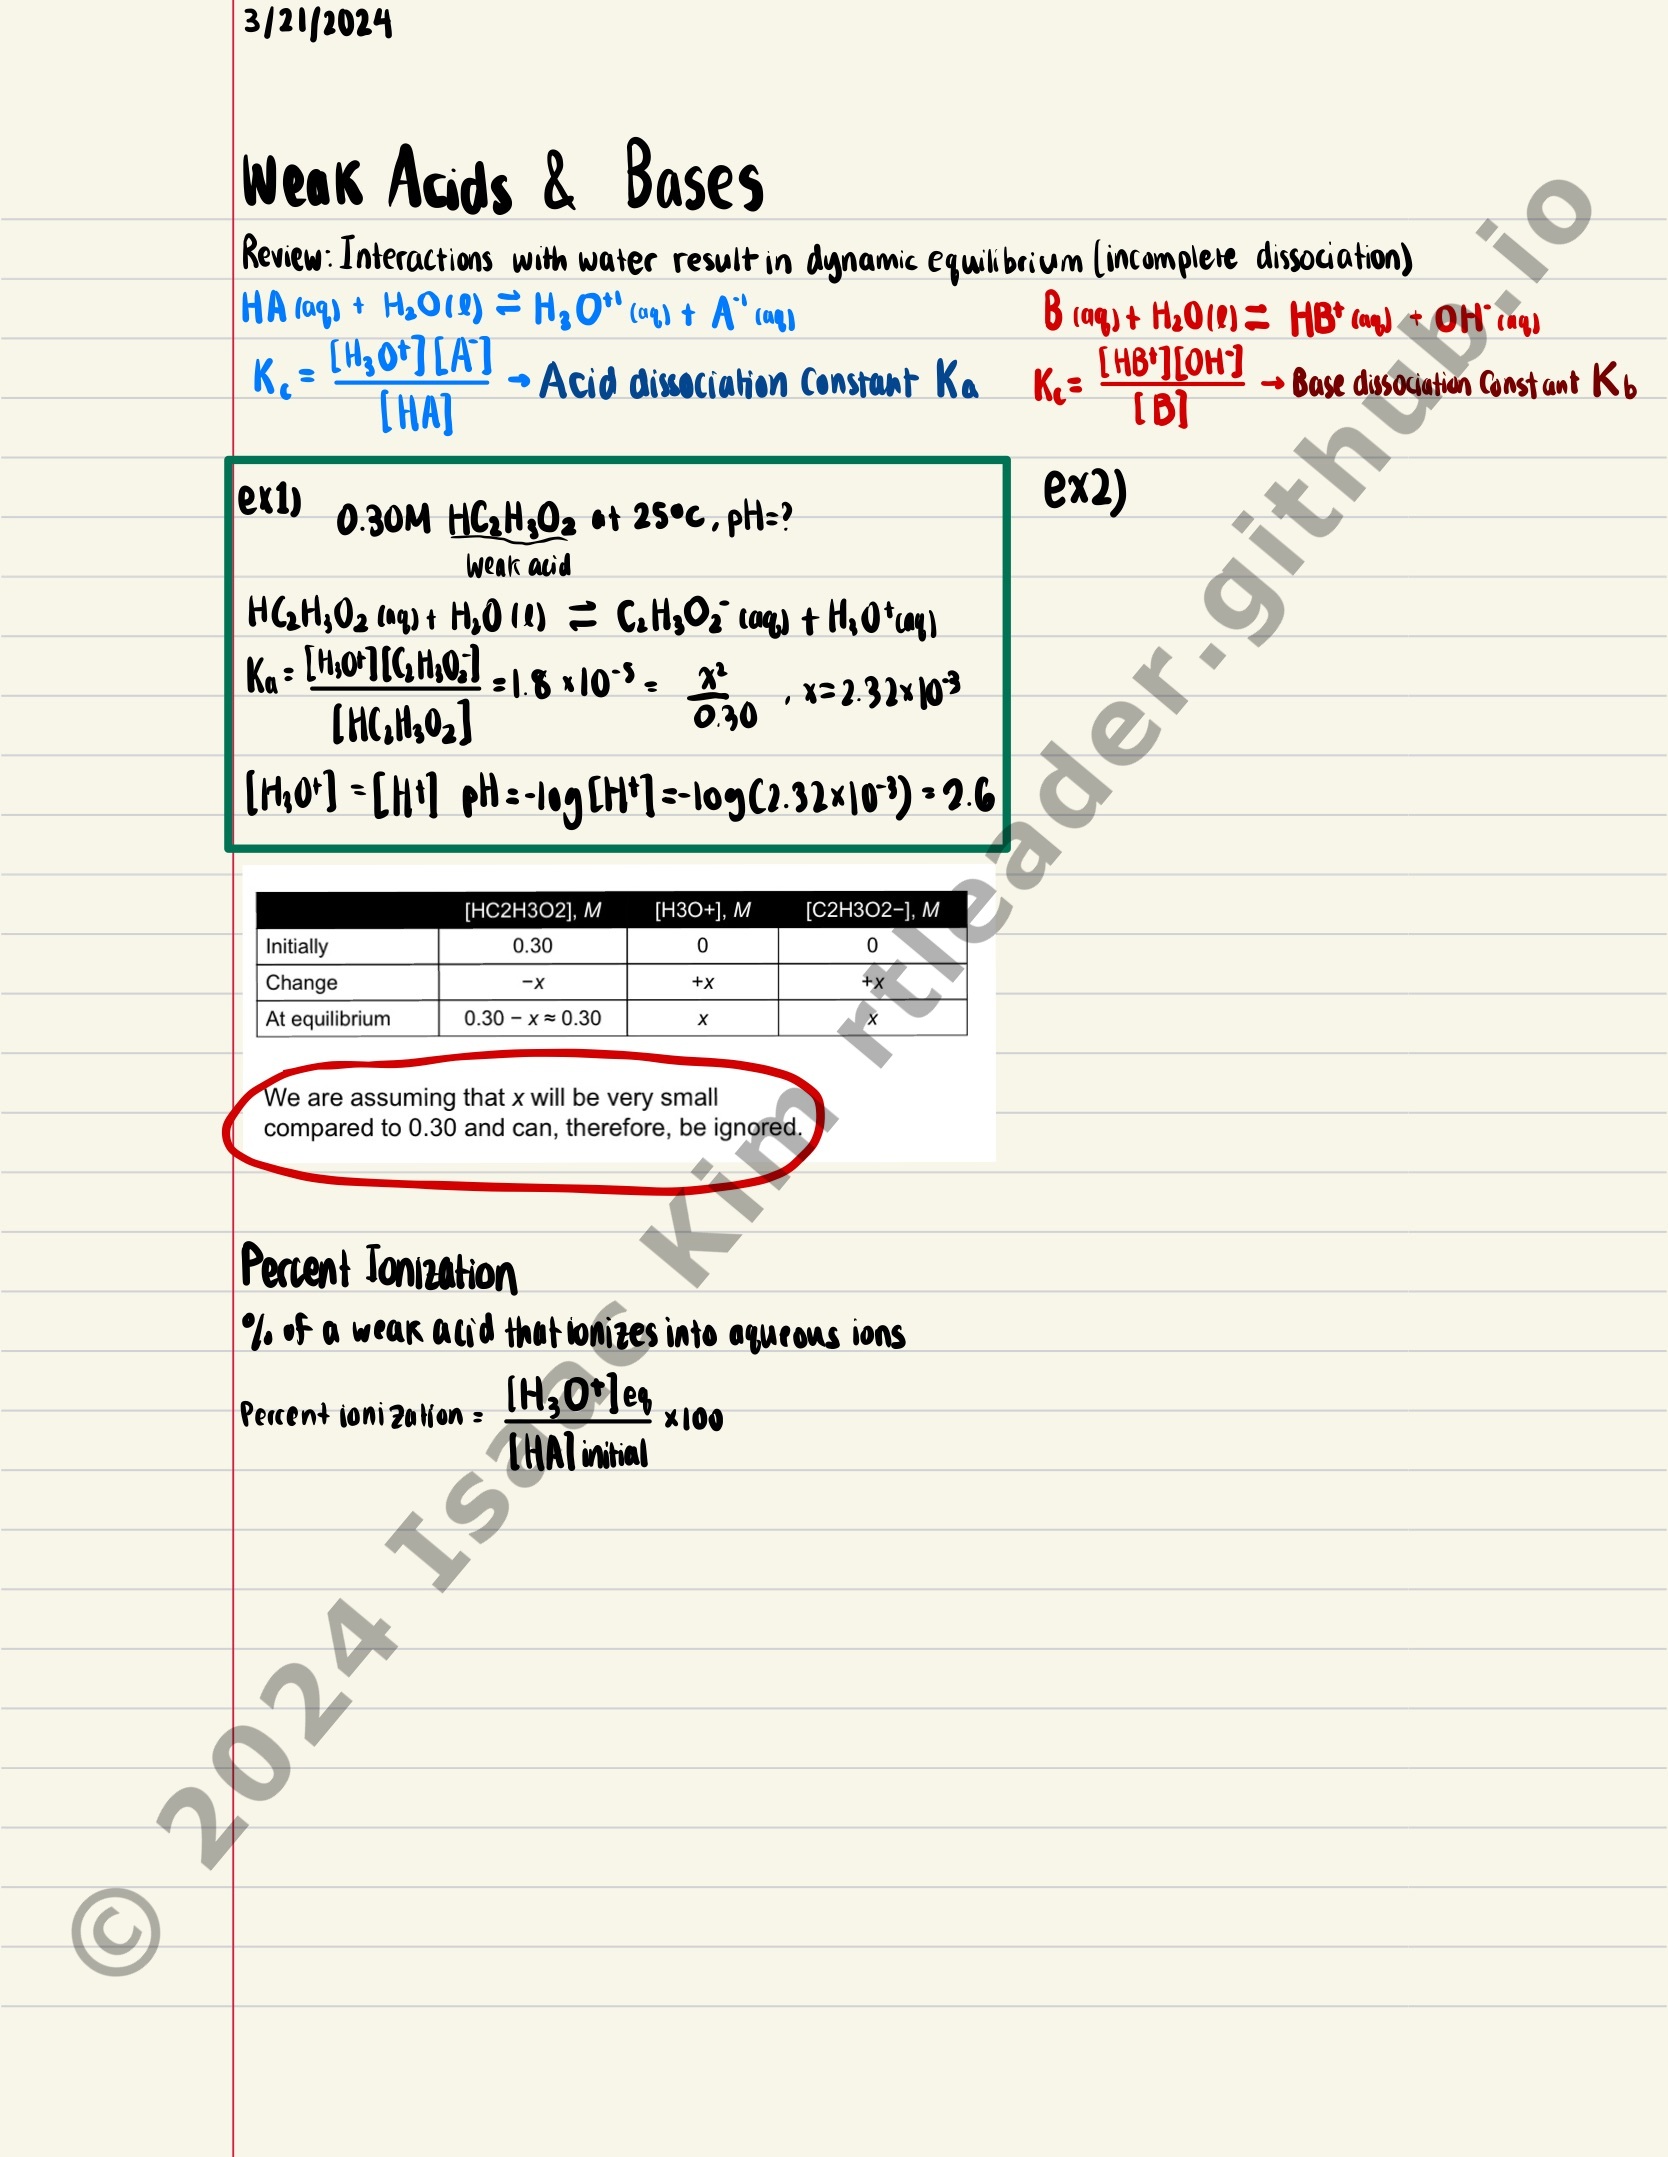 3/21/2024
Weak Acids & Bases
Review: Interactions with water result in dynamic equilibrium (incomplete dissociation)
HA (aq) + H₂O(l) ⇌ H₃O⁺¹ (aq) + A⁻¹ (aq)
Kc = [H₃O⁺][A⁻] / [HA] → Acid dissociation Constant Ka
B (aq) + H₂O(l) ⇌ HB⁺ (aq) + OH⁻ (aq)
Kc = [HB⁺][OH⁻] / [B] → Base dissociation Constant Kb
ex1) 0.30M HC₂H₃O₂ at 25°C, pH=?
weak acid
HC₂H₃O₂ (aq) + H₂O (l) ⇌ C₂H₃O₂⁻ (aq) + H₃O⁺(aq)
Ka = [H₃O⁺][C₂H₃O₂⁻] / [HC₂H₃O₂] = 1.8 × 10⁻⁵ = x² / 0.30 , x = 2.32×10⁻³
[H₃O⁺] = [H⁺] pH = -log[H⁺] = -log(2.32×10⁻³) = 2.6
ex2)
[HC2H3O2], M [H3O+], M [C2H3O2−], M
Initially 0.30 0 0
Change −x +x +x
At equilibrium 0.30 − x ≈ 0.30 x x
We are assuming that x will be very small
compared to 0.30 and can, therefore, be ignored.
Percent Ionization
% of a weak acid that ionizes into aqueous ions
Percent ionization = [H₃O⁺]eq / [HA]initial ×100
© 2024 Isaac Kim rtleader.github.io